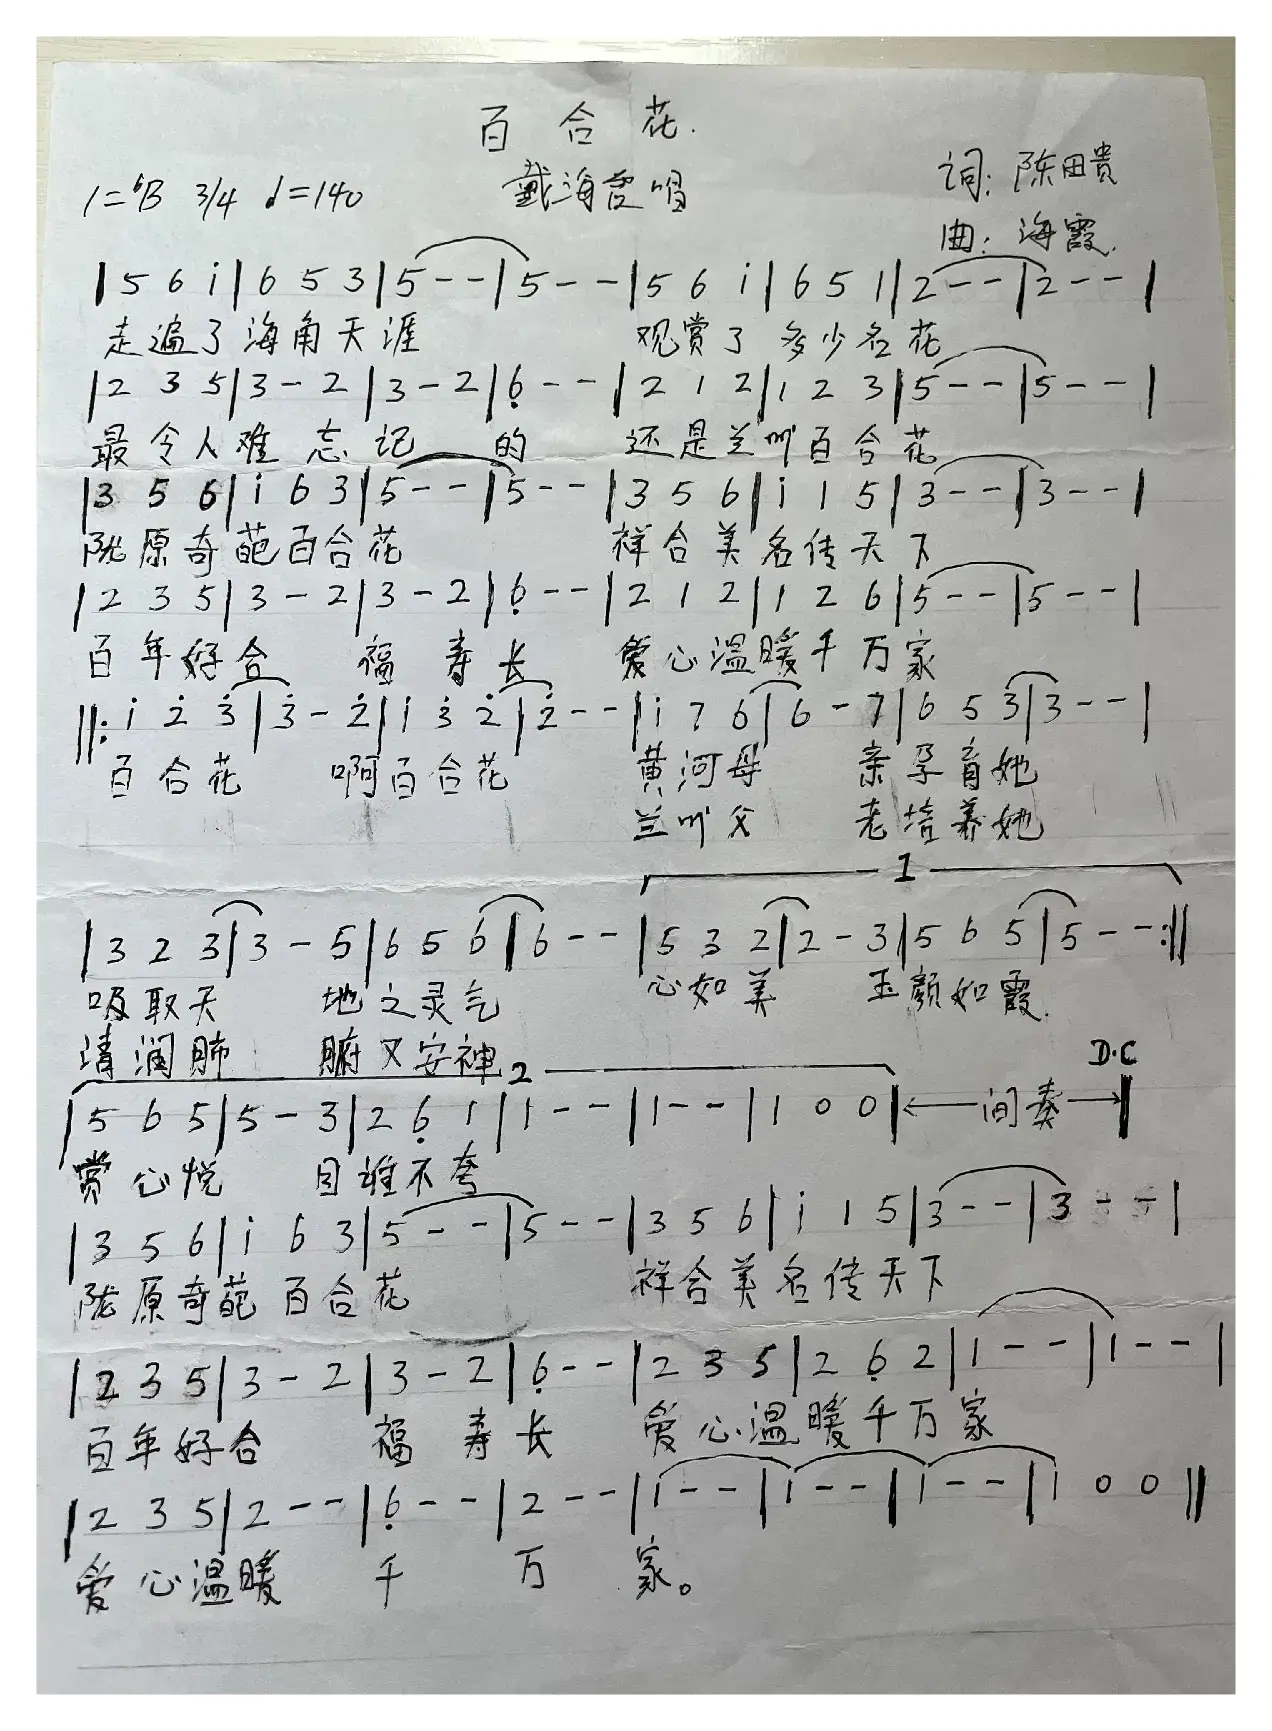 百合花.
1=ᵇB 3/4 ♩=140 戴海霞唱 词: 陈田贵
曲: 海霞.
|5 6 i|6 5 3|5--|5--|5 6 i|6 5 1|2--|2--|
走遍了海角天涯 观赏了多少名花
|2 3 5|3-2|3-2|6̣--|2 1 2|1 2 3|5--|5--|
最令人难忘记的 还是兰州百合花
|3 5 6|i 6 3|5--|5--|3 5 6|i 1 5|3--|3--|
陇原奇葩百合花 祥合美名传天下
|2 3 5|3-2|3-2|6̣--|2 1 2|1 2 6|5--|5--|
百年好合 福寿长 爱心温暖千万家
||: i 2̇ 3̇|3̇-2̇|i 3̇ 2̇|2̇--|i 7 6|6-7|6 5 3|3--|
百合花 啊百合花 黄河母 亲孕育她
兰州父 老培养她
1
|3 2 3|3-5|6 5 6|6--|5 3 2|2-3|5 6 5|5--:||
吸取天 地之灵气 心如美 玉颜如霞.
清润肺 腑又安神
2 D.C
|5 6 5|5-3|2 6̣ 1|1--|1--|1 0 0|←间奏→|
赏心悦 目谁不夸
|3 5 6|i 6 3|5--|5--|3 5 6|i 1 5|3--|3--|
陇原奇葩百合花 祥合美名传天下
|2 3 5|3-2|3-2|6̣--|2 3 5|2 6̣ 2|1--|1--|
百年好合 福寿长 爱心温暖千万家
|2 3 5|2--|6̣--|2--|1--|1--|1--|1 0 0||
爱心温暖 千 万 家。